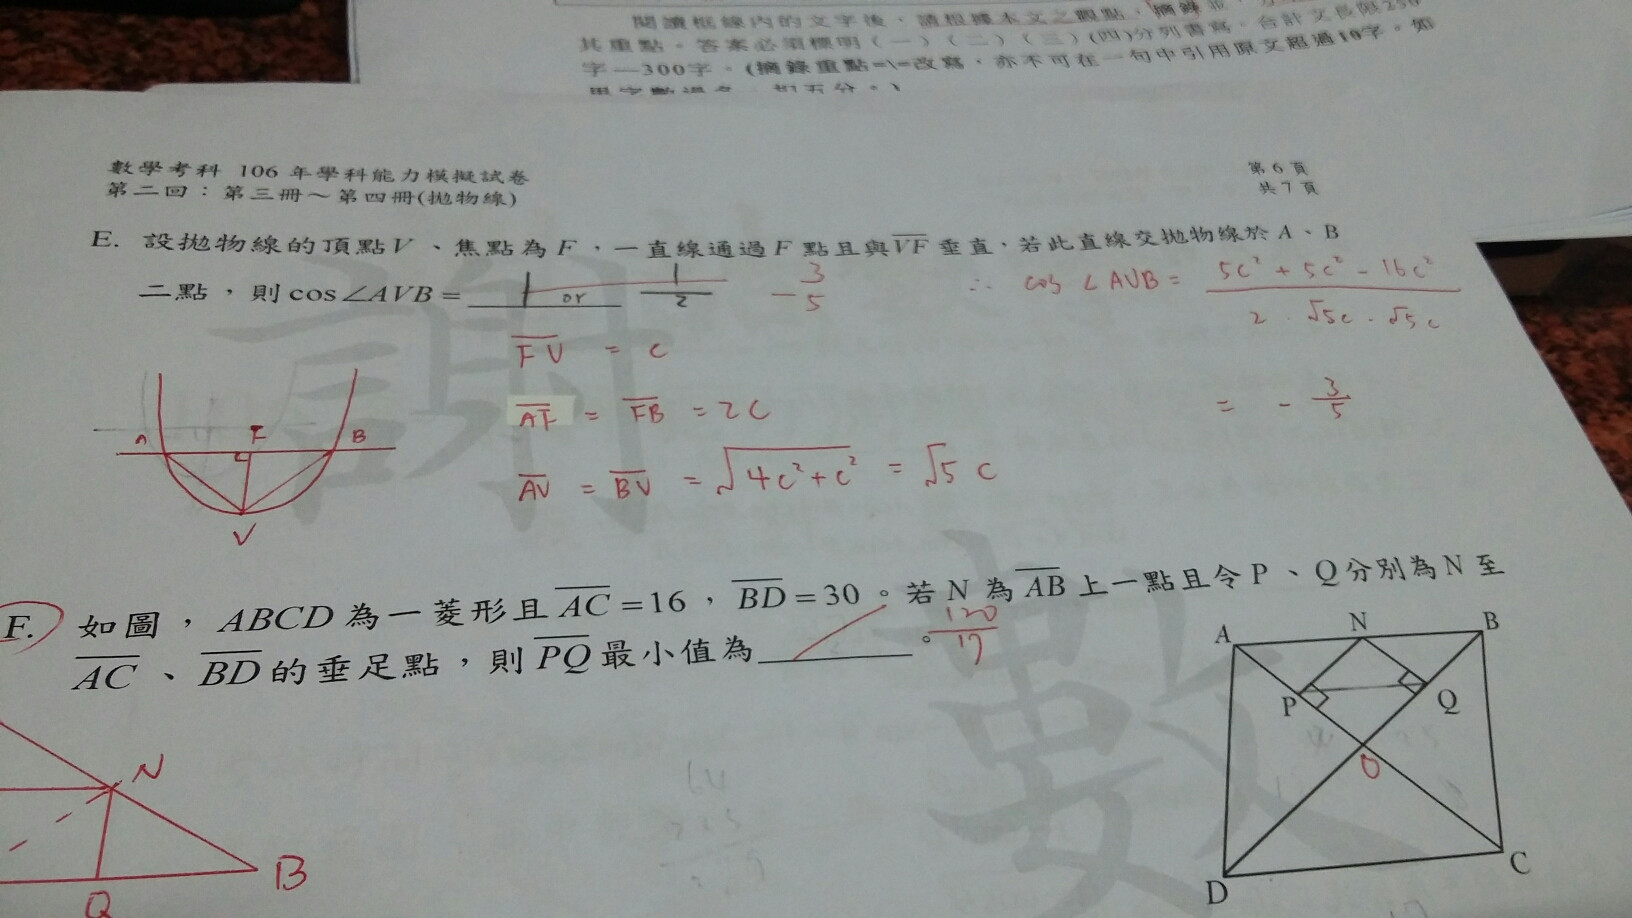 閱讀框線內的文字後，請根據本文之觀點，摘錄並
其重點。答案必須標明(一)(二)(三)(四)分列書寫，合計文長限250
字—300字。(摘錄重點=\=改寫，亦不可在一句中引用原文超過10字。如
數學考科 106 年學科能力模擬試卷
第二回：第三冊～第四冊(拋物線)
第 6 頁
共 7 頁
E. 設拋物線的頂點V、焦點為F，一直線通過F點且與VF垂直，若此直線交拋物線於A、B
二點，則cos∠AVB= 1 or 1/2 -3/5
∴ cos∠AVB = (5c²+5c²-16c²)/(2·√5c·√5c)
= -3/5
FV = c
AF = FB = 2c
AV = BV = √(4c²+c²) = √5 c
A F B
V
F. 如圖，ABCD為一菱形且AC=16，BD=30。若N為AB上一點且令P、Q分別為N至
AC、BD的垂足點，則PQ最小值為 。 120/17
A N B
P Q
O
D C
N
B
Q
謝
數